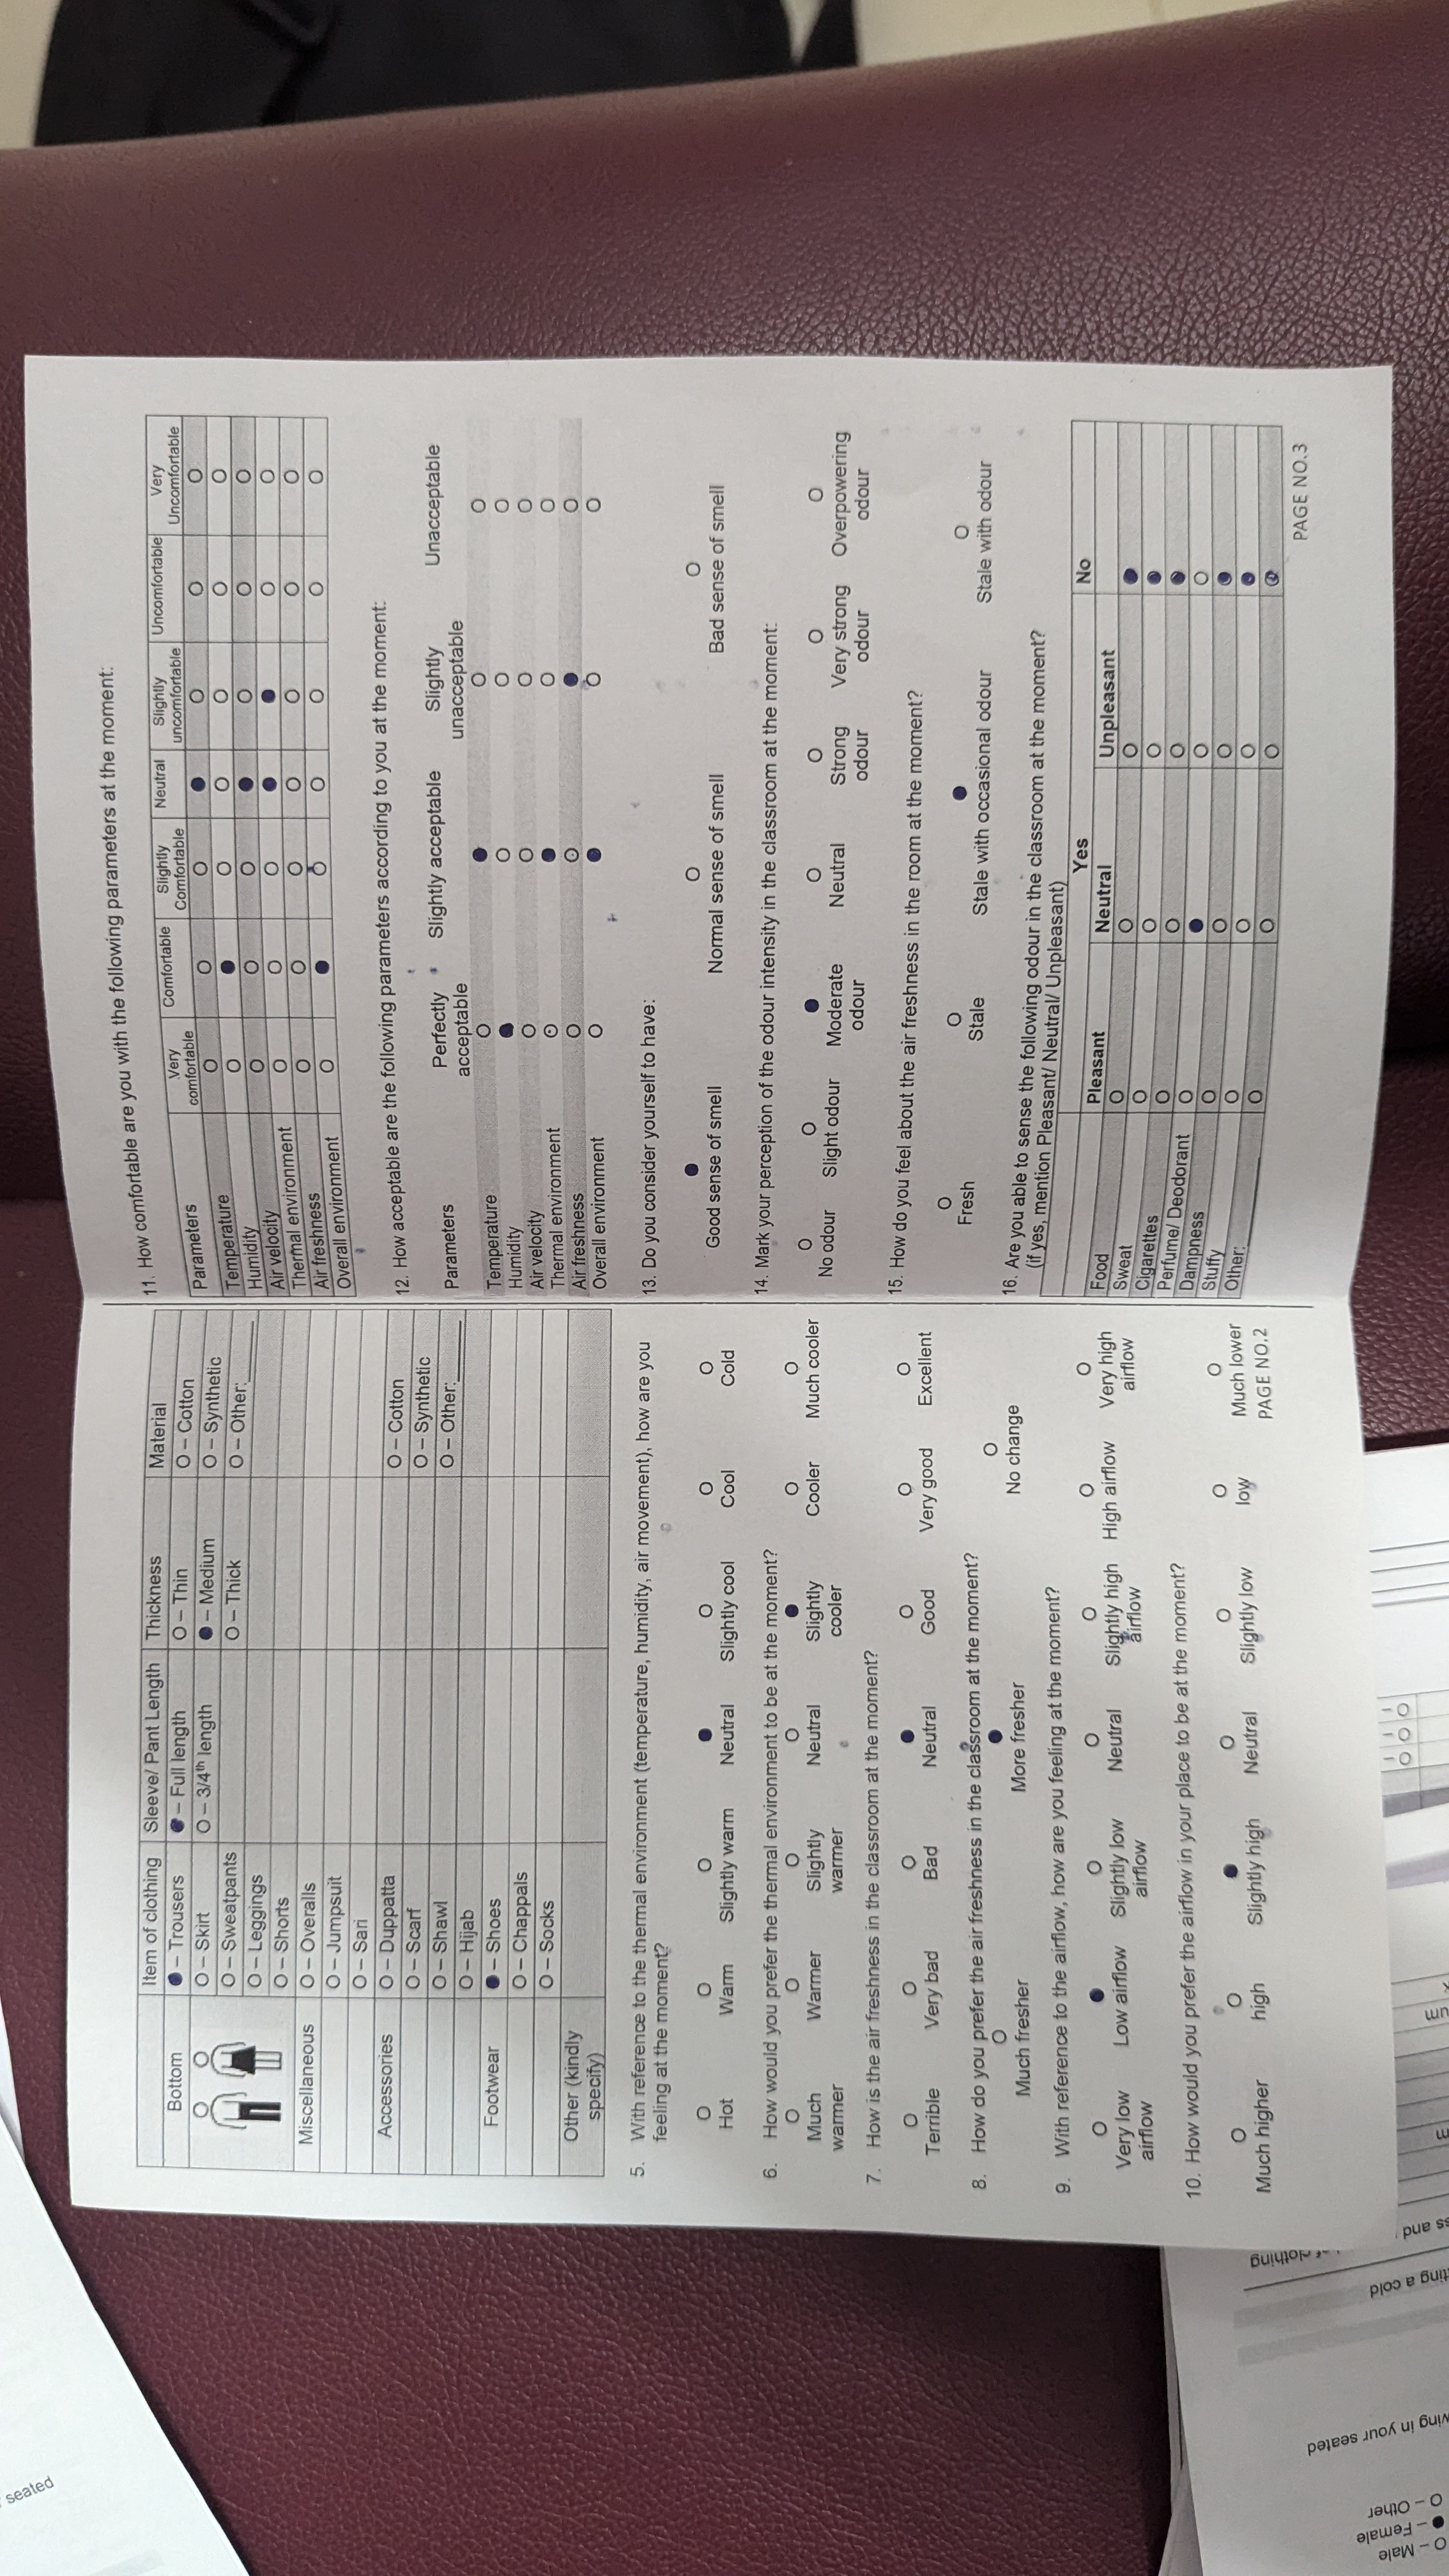 Item of clothing Sleeve/ Pant Length Thickness Material
Bottom
● – Trousers ● – Full length O – Thin O – Cotton
O – Skirt O – 3/4th length ● – Medium O – Synthetic
O – Sweatpants O – Thick O – Other:____
O – Leggings
O – Shorts
Miscellaneous O – Overalls
O – Jumpsuit
O – Sari
Accessories O – Duppatta O – Cotton
O – Scarf O – Synthetic
O – Shawl O – Other:____
O – Hijab
Footwear ● – Shoes
O – Chappals
O – Socks
Other (kindly
specify)
5. With reference to the thermal environment (temperature, humidity, air movement), how are you
feeling at the moment?
O O O ● O O O
Hot Warm Slightly warm Neutral Slightly cool Cool Cold
6. How would you prefer the thermal environment to be at the moment?
O O O O ● O O
Much Warmer Slightly Neutral Slightly Cooler Much cooler
warmer warmer cooler
7. How is the air freshness in the classroom at the moment?
O O O ● O O O
Terrible Very bad Bad Neutral Good Very good Excellent
8. How do you prefer the air freshness in the classroom at the moment?
O ● O
Much fresher More fresher No change
9. With reference to the airflow, how are you feeling at the moment?
O ● O O O O O
Very low Low airflow Slightly low Neutral Slightly high High airflow Very high
airflow airflow airflow airflow
10. How would you prefer the airflow in your place to be at the moment?
O O ● O O O O
Much higher high Slightly high Neutral Slightly low low Much lower
PAGE NO.2
11. How comfortable are you with the following parameters at the moment:
Parameters Very comfortable Comfortable Slightly Comfortable Neutral Slightly uncomfortable Uncomfortable Very Uncomfortable
O O O ● O O O
Temperature O ● O O O O O
Humidity O O O ● O O O
Air velocity O O O ● ● O O
Thermal environment O O O O O O O
Air freshness O ● O O O O O
Overall environment
12. How acceptable are the following parameters according to you at the moment:
Parameters Perfectly acceptable Slightly acceptable Slightly unacceptable Unacceptable
Temperature O ● O O
Humidity ● O O O
Air velocity O O O O
Thermal environment O ● O O
Air freshness O O ● O
Overall environment O ● O O
13. Do you consider yourself to have:
● O O
Good sense of smell Normal sense of smell Bad sense of smell
14. Mark your perception of the odour intensity in the classroom at the moment:
O O ● O O O O
No odour Slight odour Moderate Neutral Strong Very strong Overpowering
odour odour odour odour
15. How do you feel about the air freshness in the room at the moment?
O O ● O
Fresh Stale Stale with occasional odour Stale with odour
16. Are you able to sense the following odour in the classroom at the moment?
(if yes, mention Pleasant/ Neutral/ Unpleasant)
Yes No
Pleasant Neutral Unpleasant
Food O O O ●
Sweat O O O ●
Cigarettes O O O ●
Perfume/ Deodorant O ● O O
Dampness O O O ●
Stuffy O O O ●
Other:____ O O O ●
PAGE NO.3
seated
ss and
of clothing
ting a cold
wing in your seated
O – Male
● – Female
O – Other